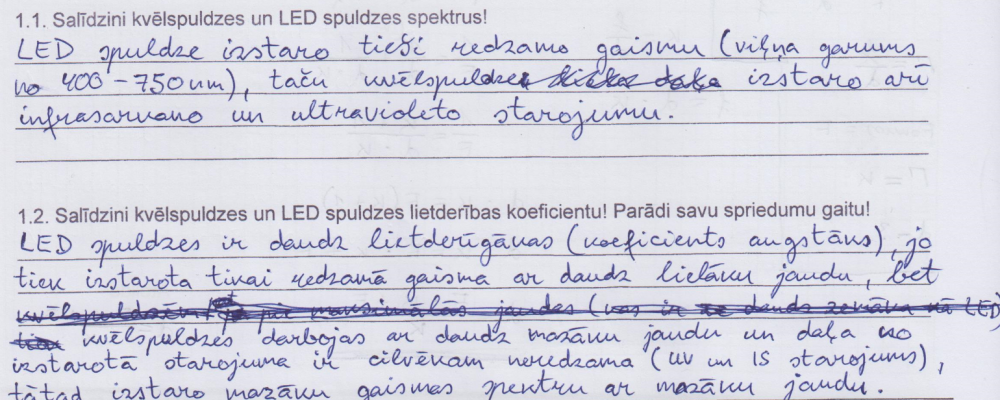 1.1. Salīdzini kvēlspuldzes un LED spuldzes spektrus!
LED spuldze izstaro tieši redzamo gaismu (viļņa garums
no 400-750nm), taču kvēlspuldze izstaro arī
infrasarkano un ultravioleto starojumu.
1.2. Salīdzini kvēlspuldzes un LED spuldzes lietderības koeficientu! Parādi savu spriedumu gaitu!
LED spuldzes ir daudz lietderīgākas (koeficients augstāks), jo
tiek izstarota tikai redzamā gaisma ar daudz lielāku jaudu, bet
kvēlspuldzes darbojas ar daudz mazāku jaudu un daļa no
izstarotā starojuma ir cilvēkam neredzama (UV un IS starojums),
tātad izstaro mazāku gaismas spektru ar mazāku jaudu.